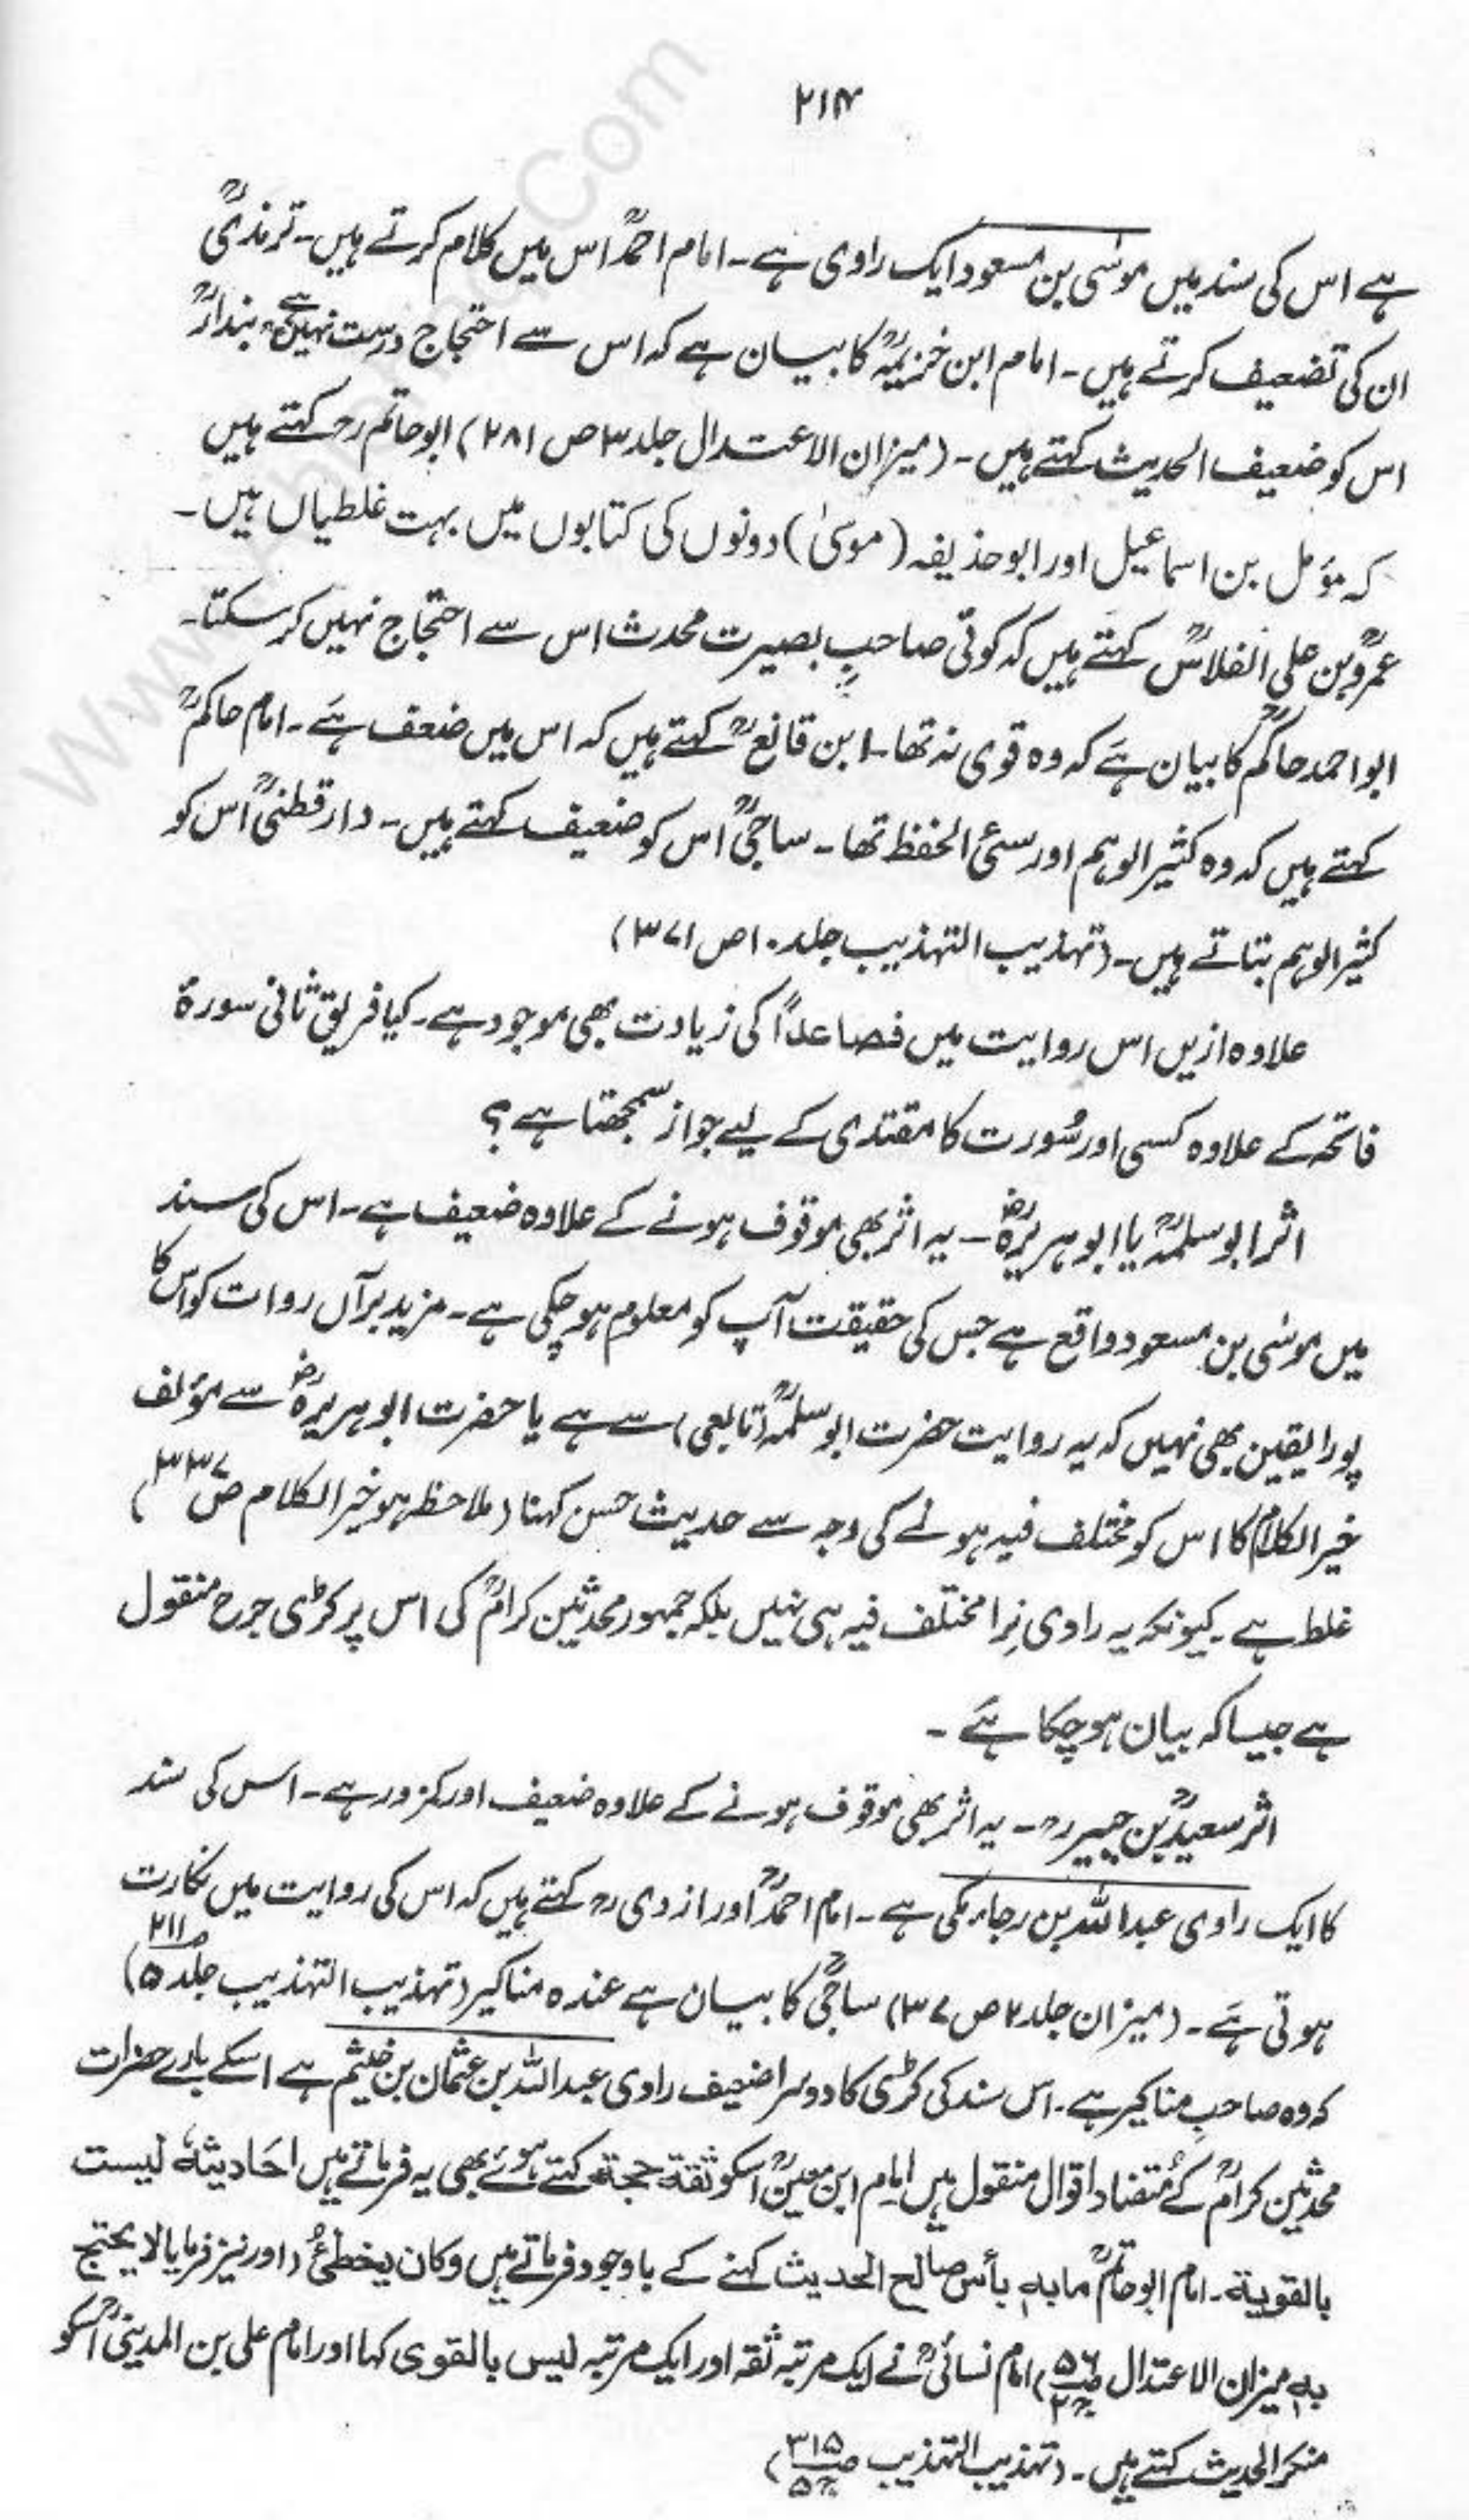 ۲۱۴
ہے اس کی سند میں موسٰی بن مسعود ایک راوی ہے۔ امام احمدؒ اس میں کلام کرتے ہیں۔ ترمذیؒ
ان کی تضعیف کرتے ہیں۔ امام ابن خزیمہؒ کا بیان ہے کہ اس سے احتجاج درست نہیں ہے، بندارؒ
اس کو ضعیف الحدیث کہتے ہیں۔ (میزان الاعتدال جلد ۳ ص ۲۸۱) ابو حاتم رح کہتے ہیں
کہ مؤمل بن اسماعیل اور ابو حذیفہ (موسٰی) دونوں کی کتابوں میں بہت غلطیاں ہیں۔
عمروؒ بن علی الفلاسؒ کہتے ہیں کہ کوئی صاحبِ بصیرت محدث اس سے احتجاج نہیں کر سکتا۔
ابو احمد حاکمؒ کا بیان ہے کہ وہ قوی نہ تھا۔ ابن قانعؒ کہتے ہیں کہ اس میں ضعف ہے۔ امام حاکمؒ
کہتے ہیں کہ وہ کثیر الوہم اور سئ الحفظ تھا۔ ساجیؒ اس کو ضعیف کہتے ہیں۔ دارقطنیؒ اس کو
کثیر الوہم بتاتے ہیں۔ (تہذیب التہذیب جلد ۱۰ ص ۳۷۱)
علاوہ ازیں اس روایت میں فصاعدًا کی زیادت بھی موجود ہے۔ کیا فریق ثانی سورۃ
فاتحہ کے علاوہ کسی اور سُورت کا مقتدی کے لیے جواز سمجھتا ہے؟
اثر ابو سلمہؒ یا ابو ہریرہؓ۔ یہ اثر بھی موقوف ہونے کے علاوہ ضعیف ہے۔ اس کی سند
میں موسٰی بن مسعود واقع ہے جس کی حقیقت آپ کو معلوم ہو چکی ہے۔ مزید برآں روات کو اس کا
پورا یقین بھی نہیں کہ یہ روایت حضرت ابو سلمہؒ (تابعی) سے ہے یا حضرت ابو ہریرہؓ سے مؤلف
خیر الکلام کا اس کو مختلف فیہ ہونے کی وجہ سے حدیث حسن کہنا (ملاحظہ ہو خیر الکلام ص ۳۳۷)
غلط ہے۔ کیونکہ یہ راوی نِرا مختلف فیہ ہی نہیں بلکہ جمہور محدثین کرامؒ کی اس پر کڑی جرح منقول
ہے جیسا کہ بیان ہو چکا ہے۔
اثر سعیدؒ بن جبیر رح۔ یہ اثر بھی موقوف ہونے کے علاوہ ضعیف اور کمزور ہے۔ اس کی سند
کا ایک راوی عبد اللہ بن رجاء مکی ہے۔ امام احمدؒ اور ازدی رح کہتے ہیں کہ اس کی روایت میں نکارت
ہوتی ہے۔ (میزان جلد ۲ ص ۳۷) ساجیؒ کا بیان ہے عندہ مناکیر (تہذیب التہذیب جلد ۵ ص ۲۱۱)
کہ وہ صاحبِ مناکیر ہے۔ اس سند کی کڑی کا دوسرا ضعیف راوی عبد اللہ بن عثمان بن خثیم ہے اسکے بارے حضرات
محدثین کرامؒ کے مُتضاد اقوال منقول ہیں امام ابن معینؒ اسکو ثقۃ حجۃ کہتے ہوئے بھی یہ فرماتے ہیں احَادیثہٗ لیست
بالقویة۔ امام ابو حاتمؒ مابہٖ بأس صالح الحدیث کہنے کے باوجود فرماتے ہیں وکان یخطئُ (اور نیز فرمایا لا یحتج
بہٖ میزان الاعتدال ص ۵۶ ج ۲) امام نسائیؒ نے ایک مرتبہ ثقہ اور ایک مرتبہ لیس بالقوی کہا اور امام علی بن المدینیؒ اسکو
منکر الحدیث کہتے ہیں۔ (تہذیب التہذیب ص ۳۱۵ ج ۵)